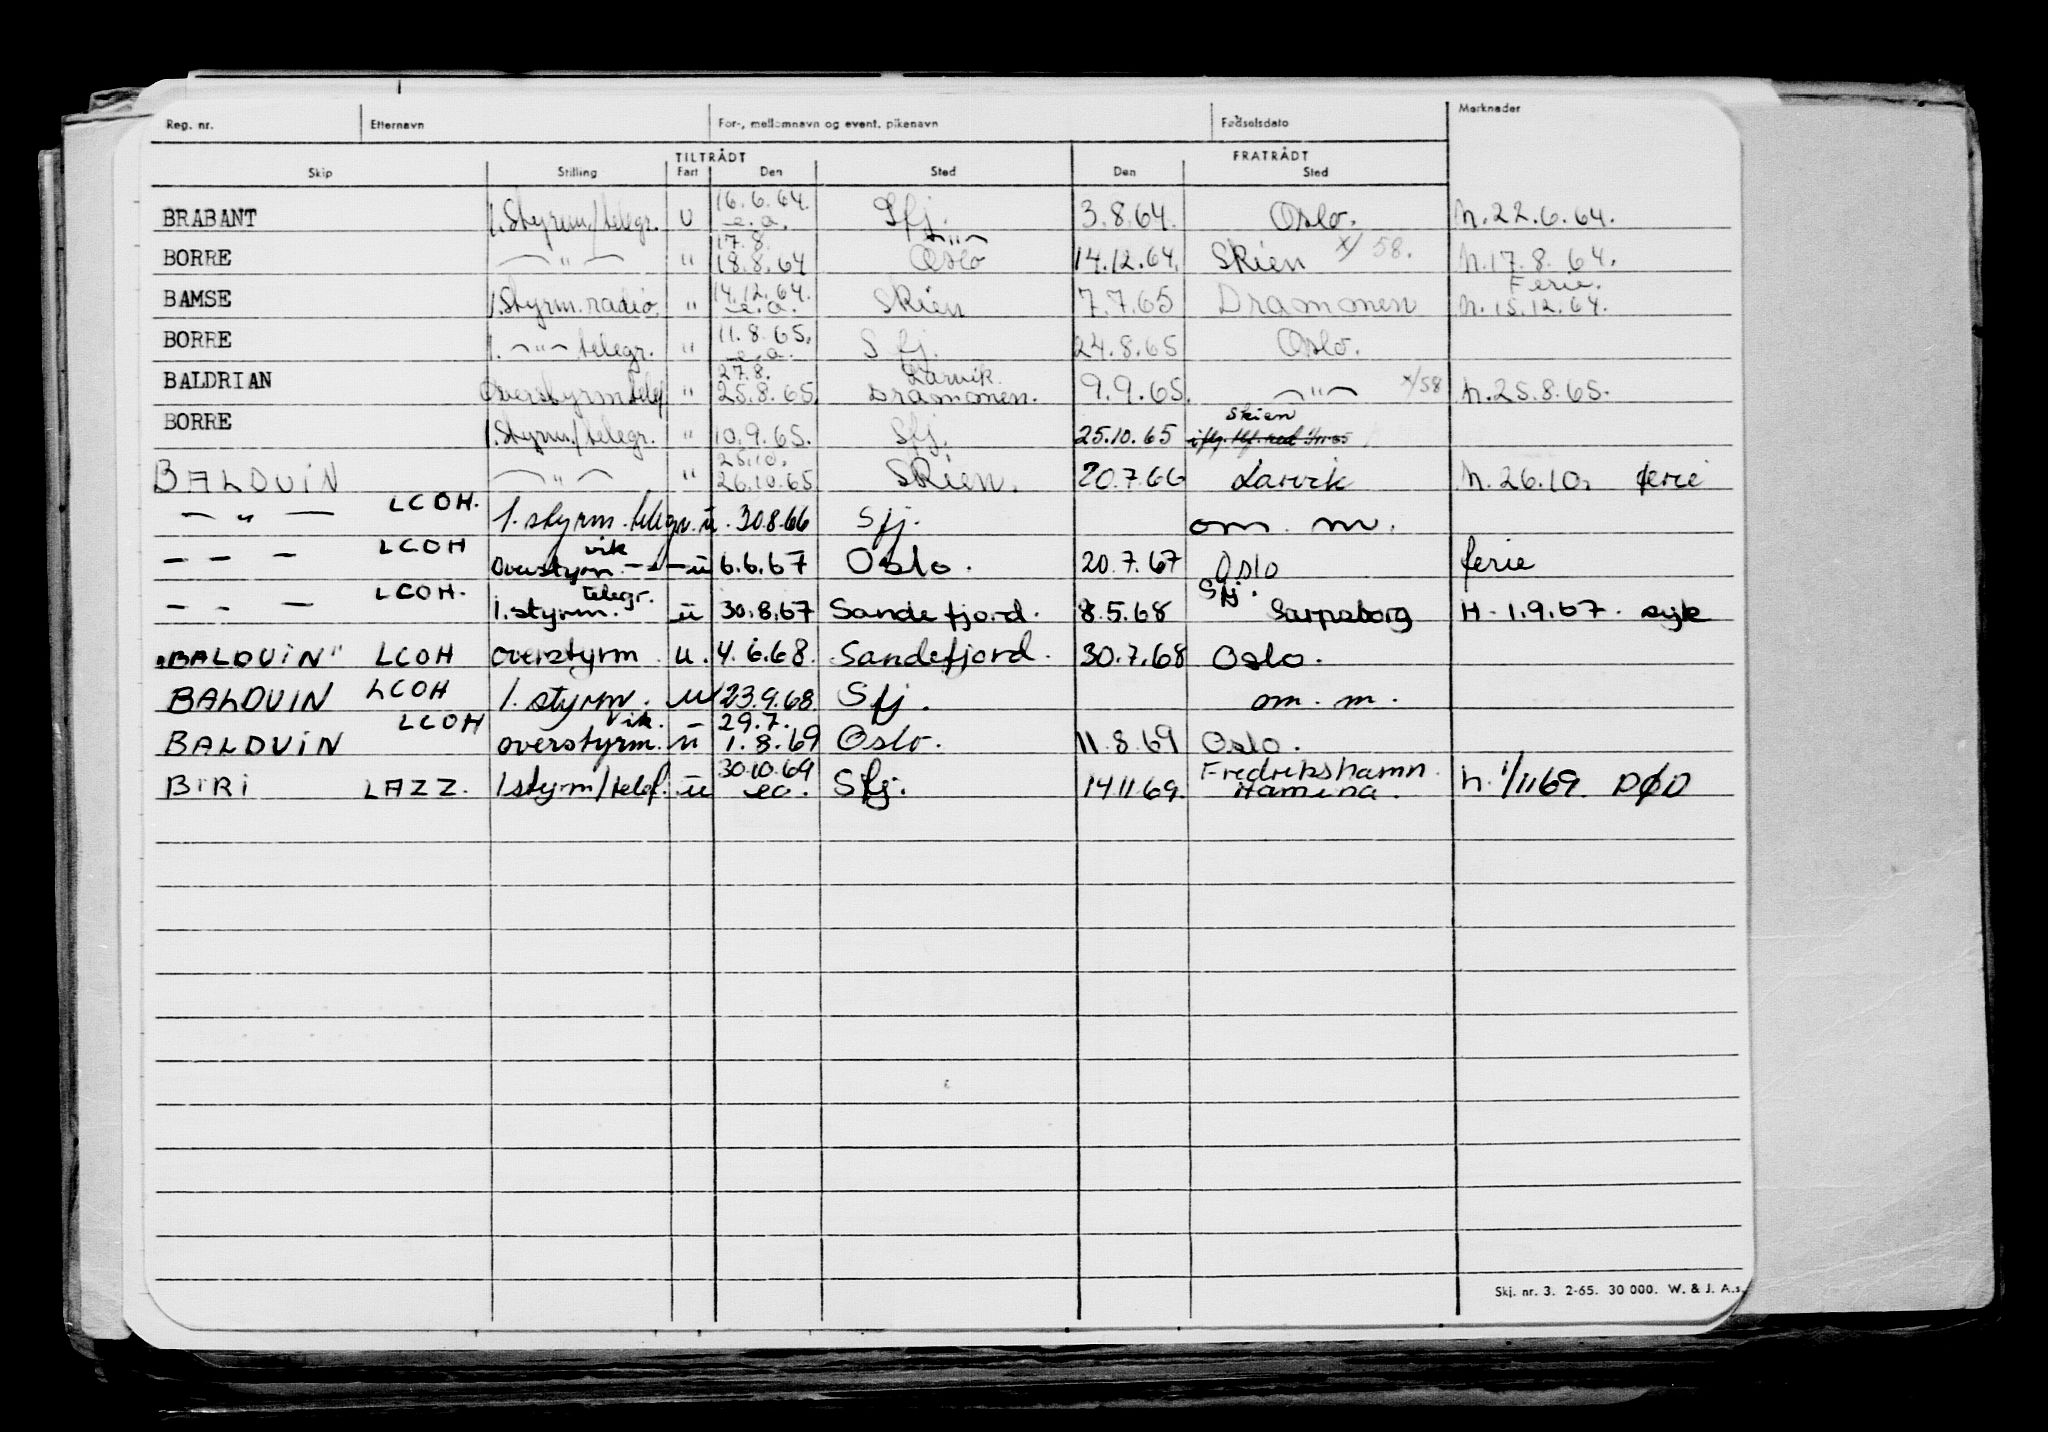 Reg. nr. Etternavn For-, mellomnavn og event. pikenavn Fødselsdato Merknader
TILTRÅDT FRATRÅDT
Skip Stilling Fart Den Sted Den Sted
16.6.64.
BRABANT 1. Styrm./telegr. U e.a. Sfj. 3.8.64. Oslo. h.22.6.64.
17.8. — " —
BORRE — " — " 18.8.64 Oslo 14.12.64. Skien x/58. h.17.8.64.
14.12.64. Ferie.
BAMSE 1. Styrm. radio. " e.a. Skien 7.7.65 Drammen h.15.12.64.
11.8.65.
BORRE 1. — " — telegr. " e.a. Sfj. 24.8.65 Oslo.
27.8. Larvik
BALDRIAN Overstyrm telegr " 25.8.65. Drammen. 9.9.65. — " — x/58 h.25.8.65.
Skien
BORRE 1. Styrm./telegr. " 10.9.65. Sfj. 25.10.65
25.10.
BALDUIN — " — " 26.10.65 Skien. 20.7.66 Larvik h.26.10. ferie
— " — LCOH. 1. styrm. telegr. u. 30.8.66 Sfj. om. m.
vik
— — — LCOH overstyrm. — " — u 6.6.67 Oslo. 20.7.67 Oslo ferie
telegr. Sfj.
— — — LCOH. 1. styrm. u 30.8.67 Sandefjord. 8.5.68 Sarpsborg H. 1.9.67. syk
"BALDUIN" LCOH overstyrm. u. 4.6.68. Sandefjord. 30.7.68 Oslo.
BALDUIN LCOH 1. styrm. u 23.9.68. Sfj. om. m.
LCOH vik. 29.7.
BALDUIN overstyrm. u 1.8.69 Oslo. 11.8.69 Oslo.
30.10.69 Fredrikshamn.
BIRI LAZZ. 1 styrm/telef. u ea. Sfj. 14.11.69. Hamina. h. 1/11 69. DØD
Skj. nr. 3. 2-65. 30 000. W. & J. A.s.